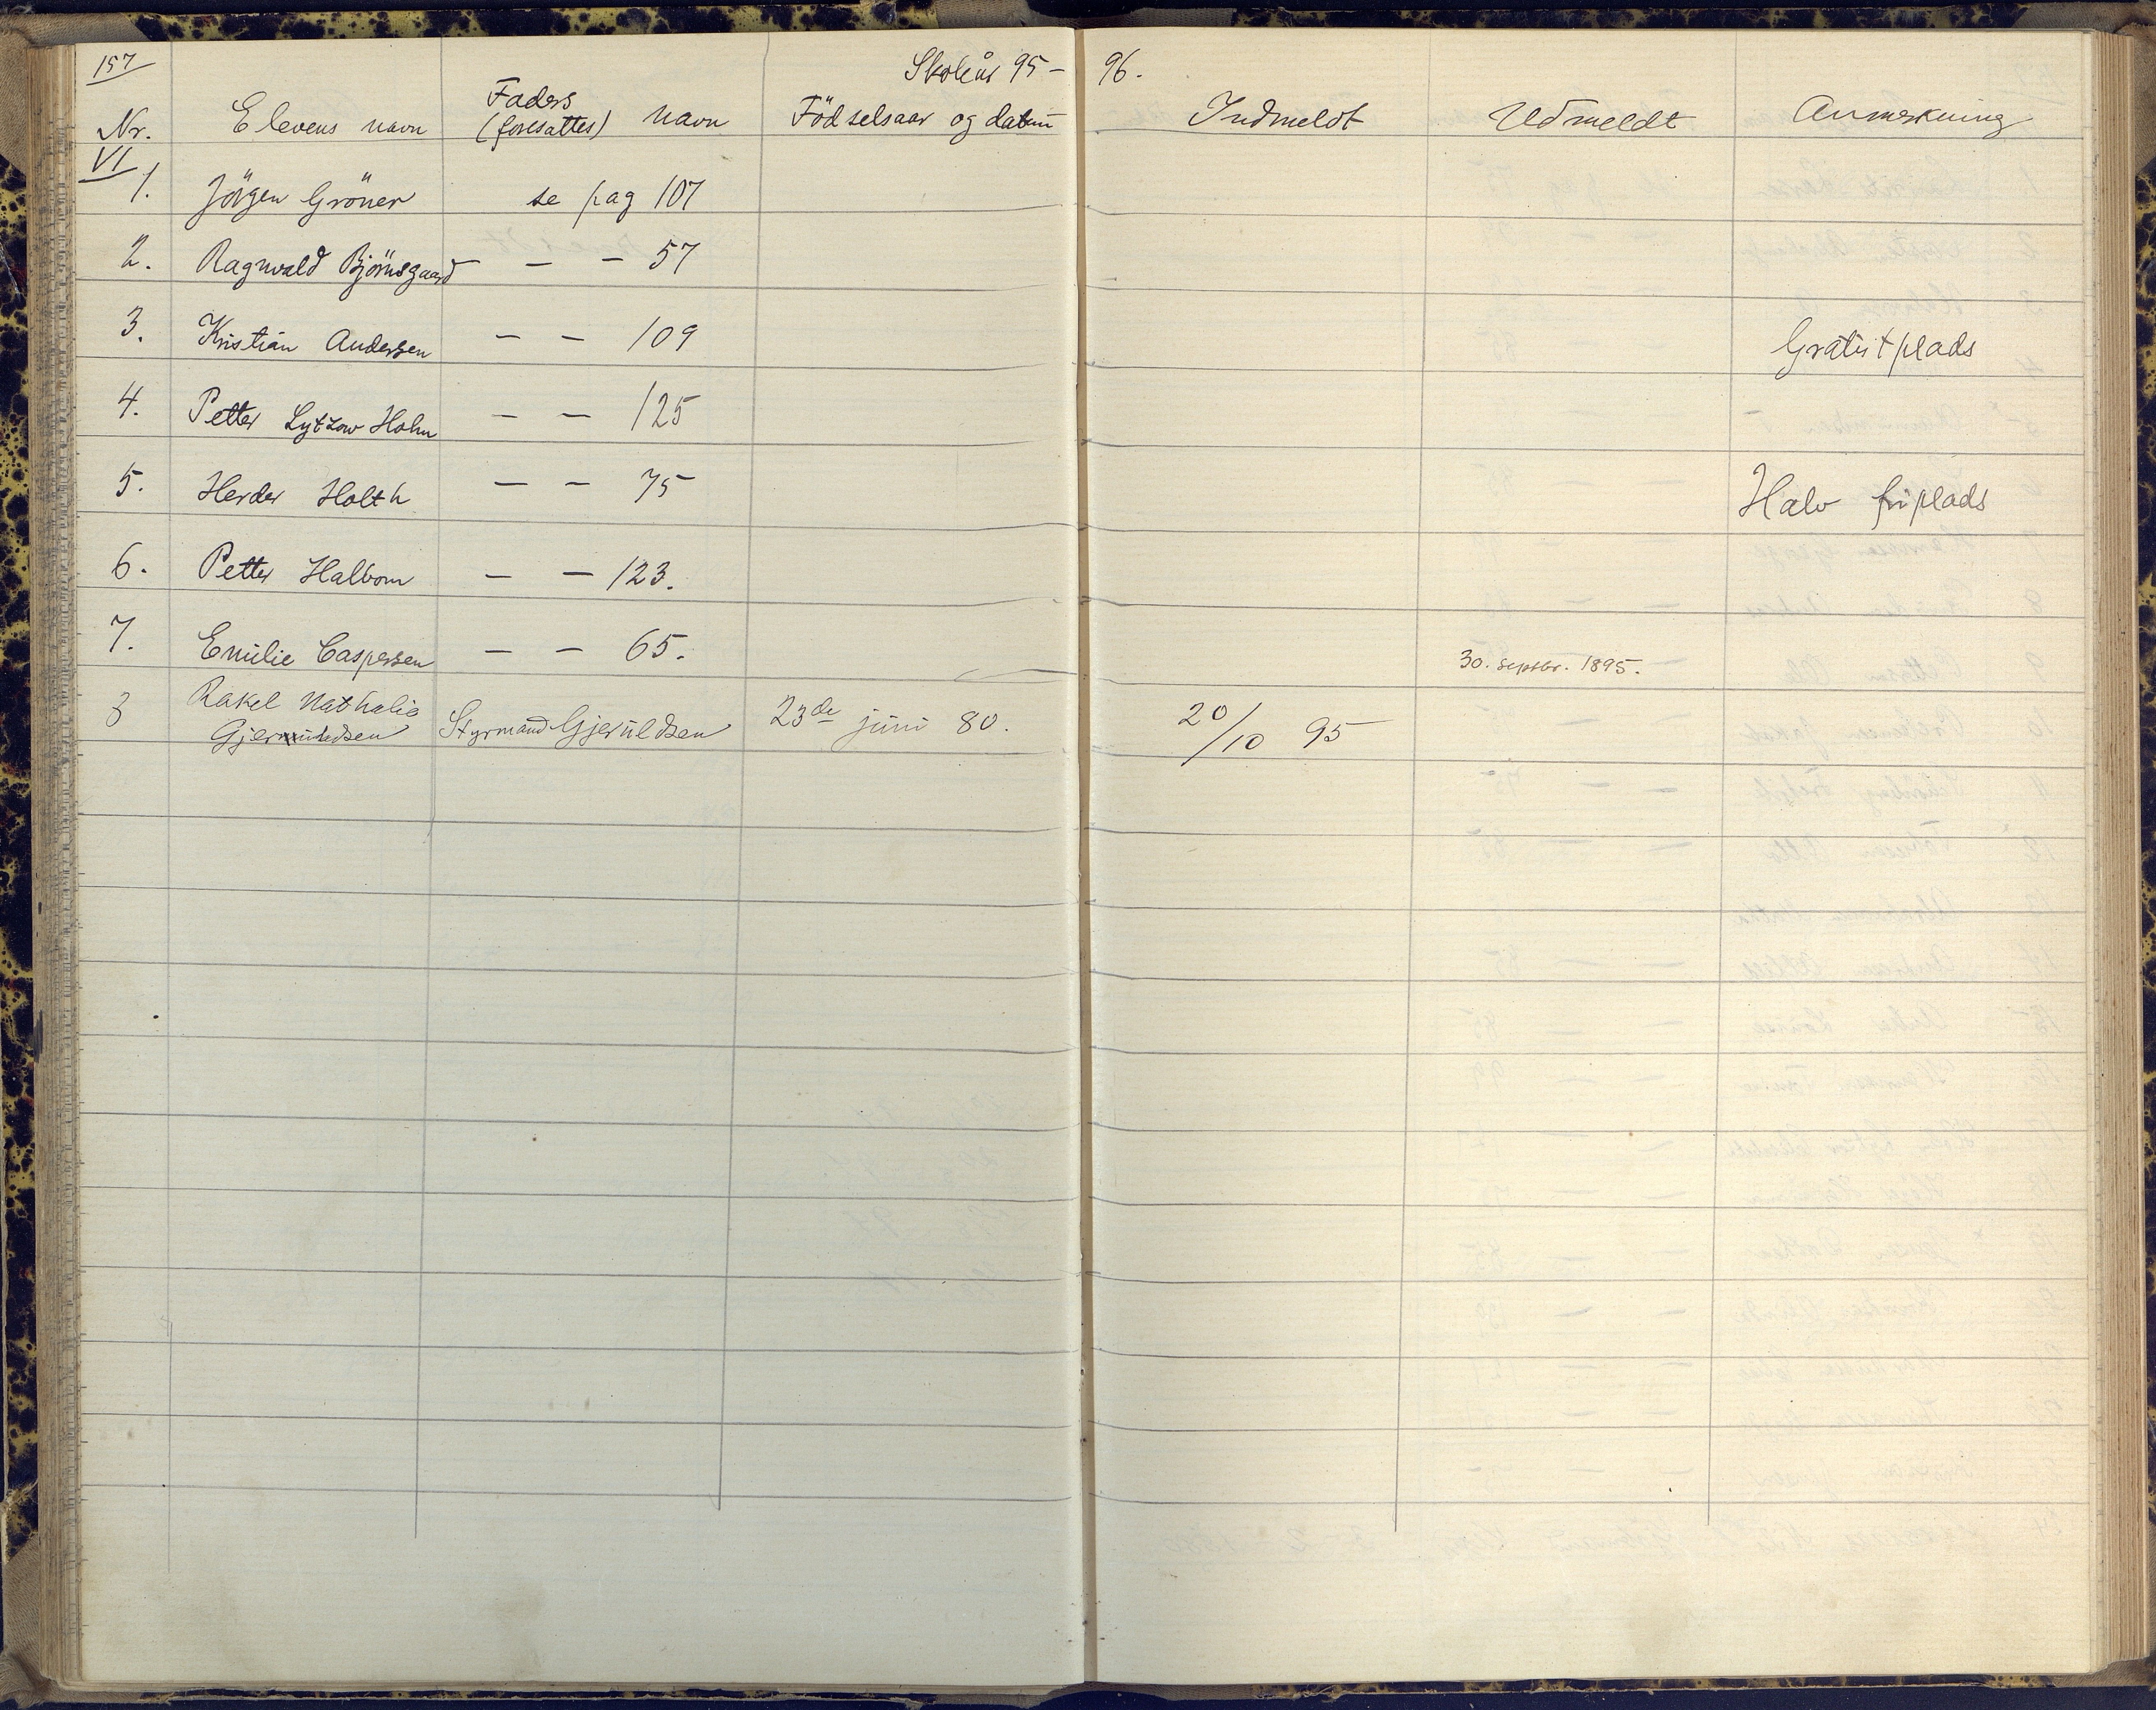 157
Skoleår 95 - 96.
Nr. Elevens navn Faders (foresattes) navn Födselsaar og datum Indmeldt Udmeldt Anmerkning
VI
1. Jörgen Gröner se pag 107
2. Ragnvald Björnsgaard - - 57
3. Kristian Andersen - - 109 Gratistplads
4. Petter Lytzow Holm - - 125
5. Herder Holth - - 75 Halv friplads
6. Petter Halbom - - 123.
7. Emilie Caspersen - - 65. 30. septbr. 1895.
8 Rakel Nathalie
Styrmand Gjeruldsen 23de juni 80. 20/10 95